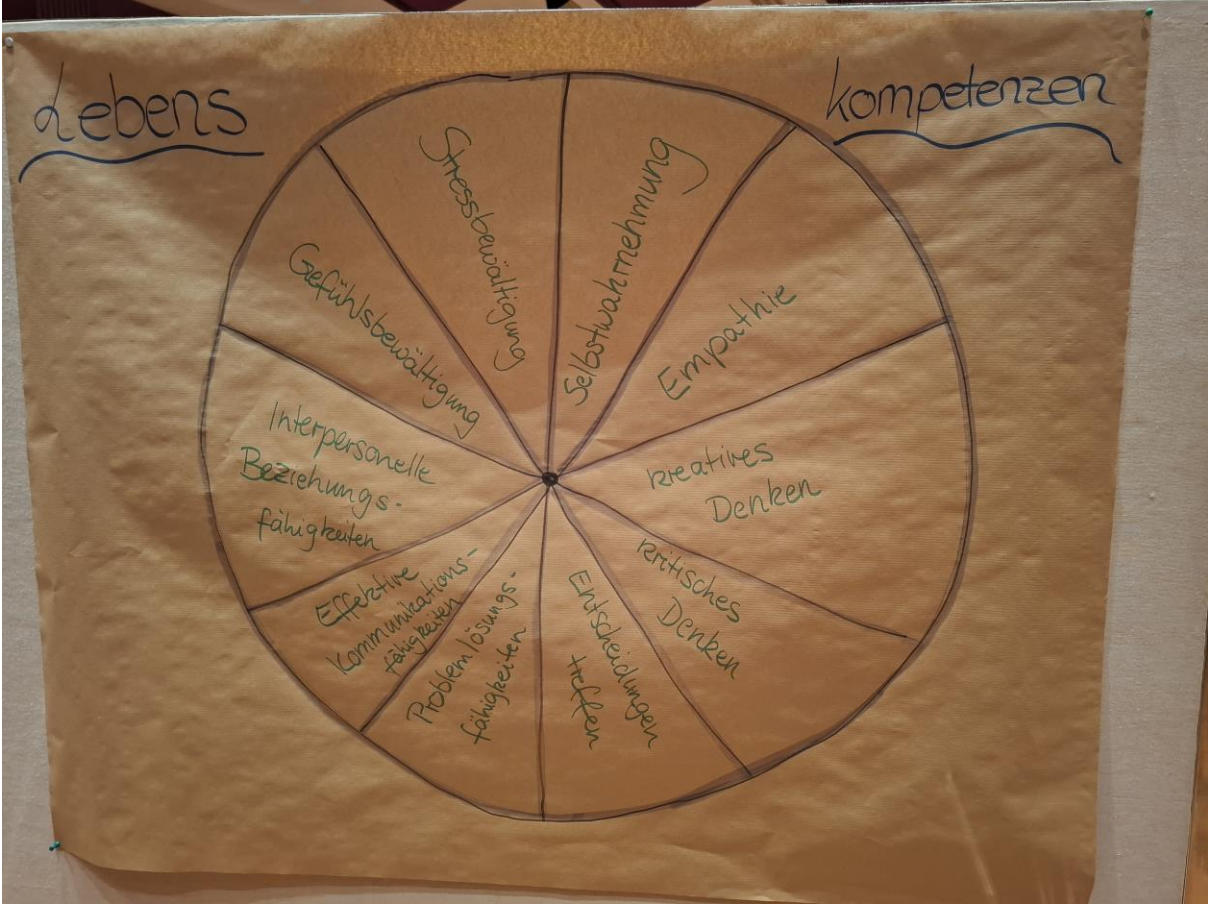 Lebens
kompetenzen
Selbstwahrnehmung
Empathie
kreatives
Denken
kritisches
Denken
Entscheidungen
treffen
Problemlösungs-
fähigkeiten
Effektive
Kommunikations-
fähigkeiten
Interpersonelle
Beziehungs-
fähigkeiten
Gefühlsbewältigung
Stressbewältigung